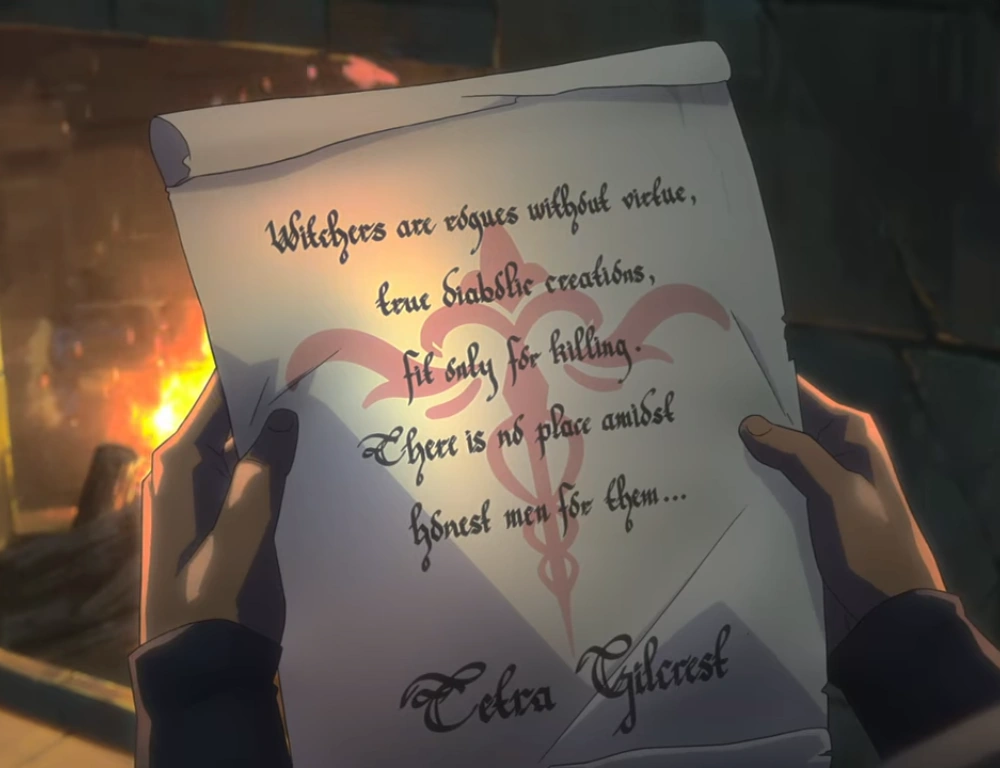 Witchers are rogues without virtue,
true diabolic creations,
fit only for killing.
There is no place amidst
honest men for them...
Tetra Gilcrest